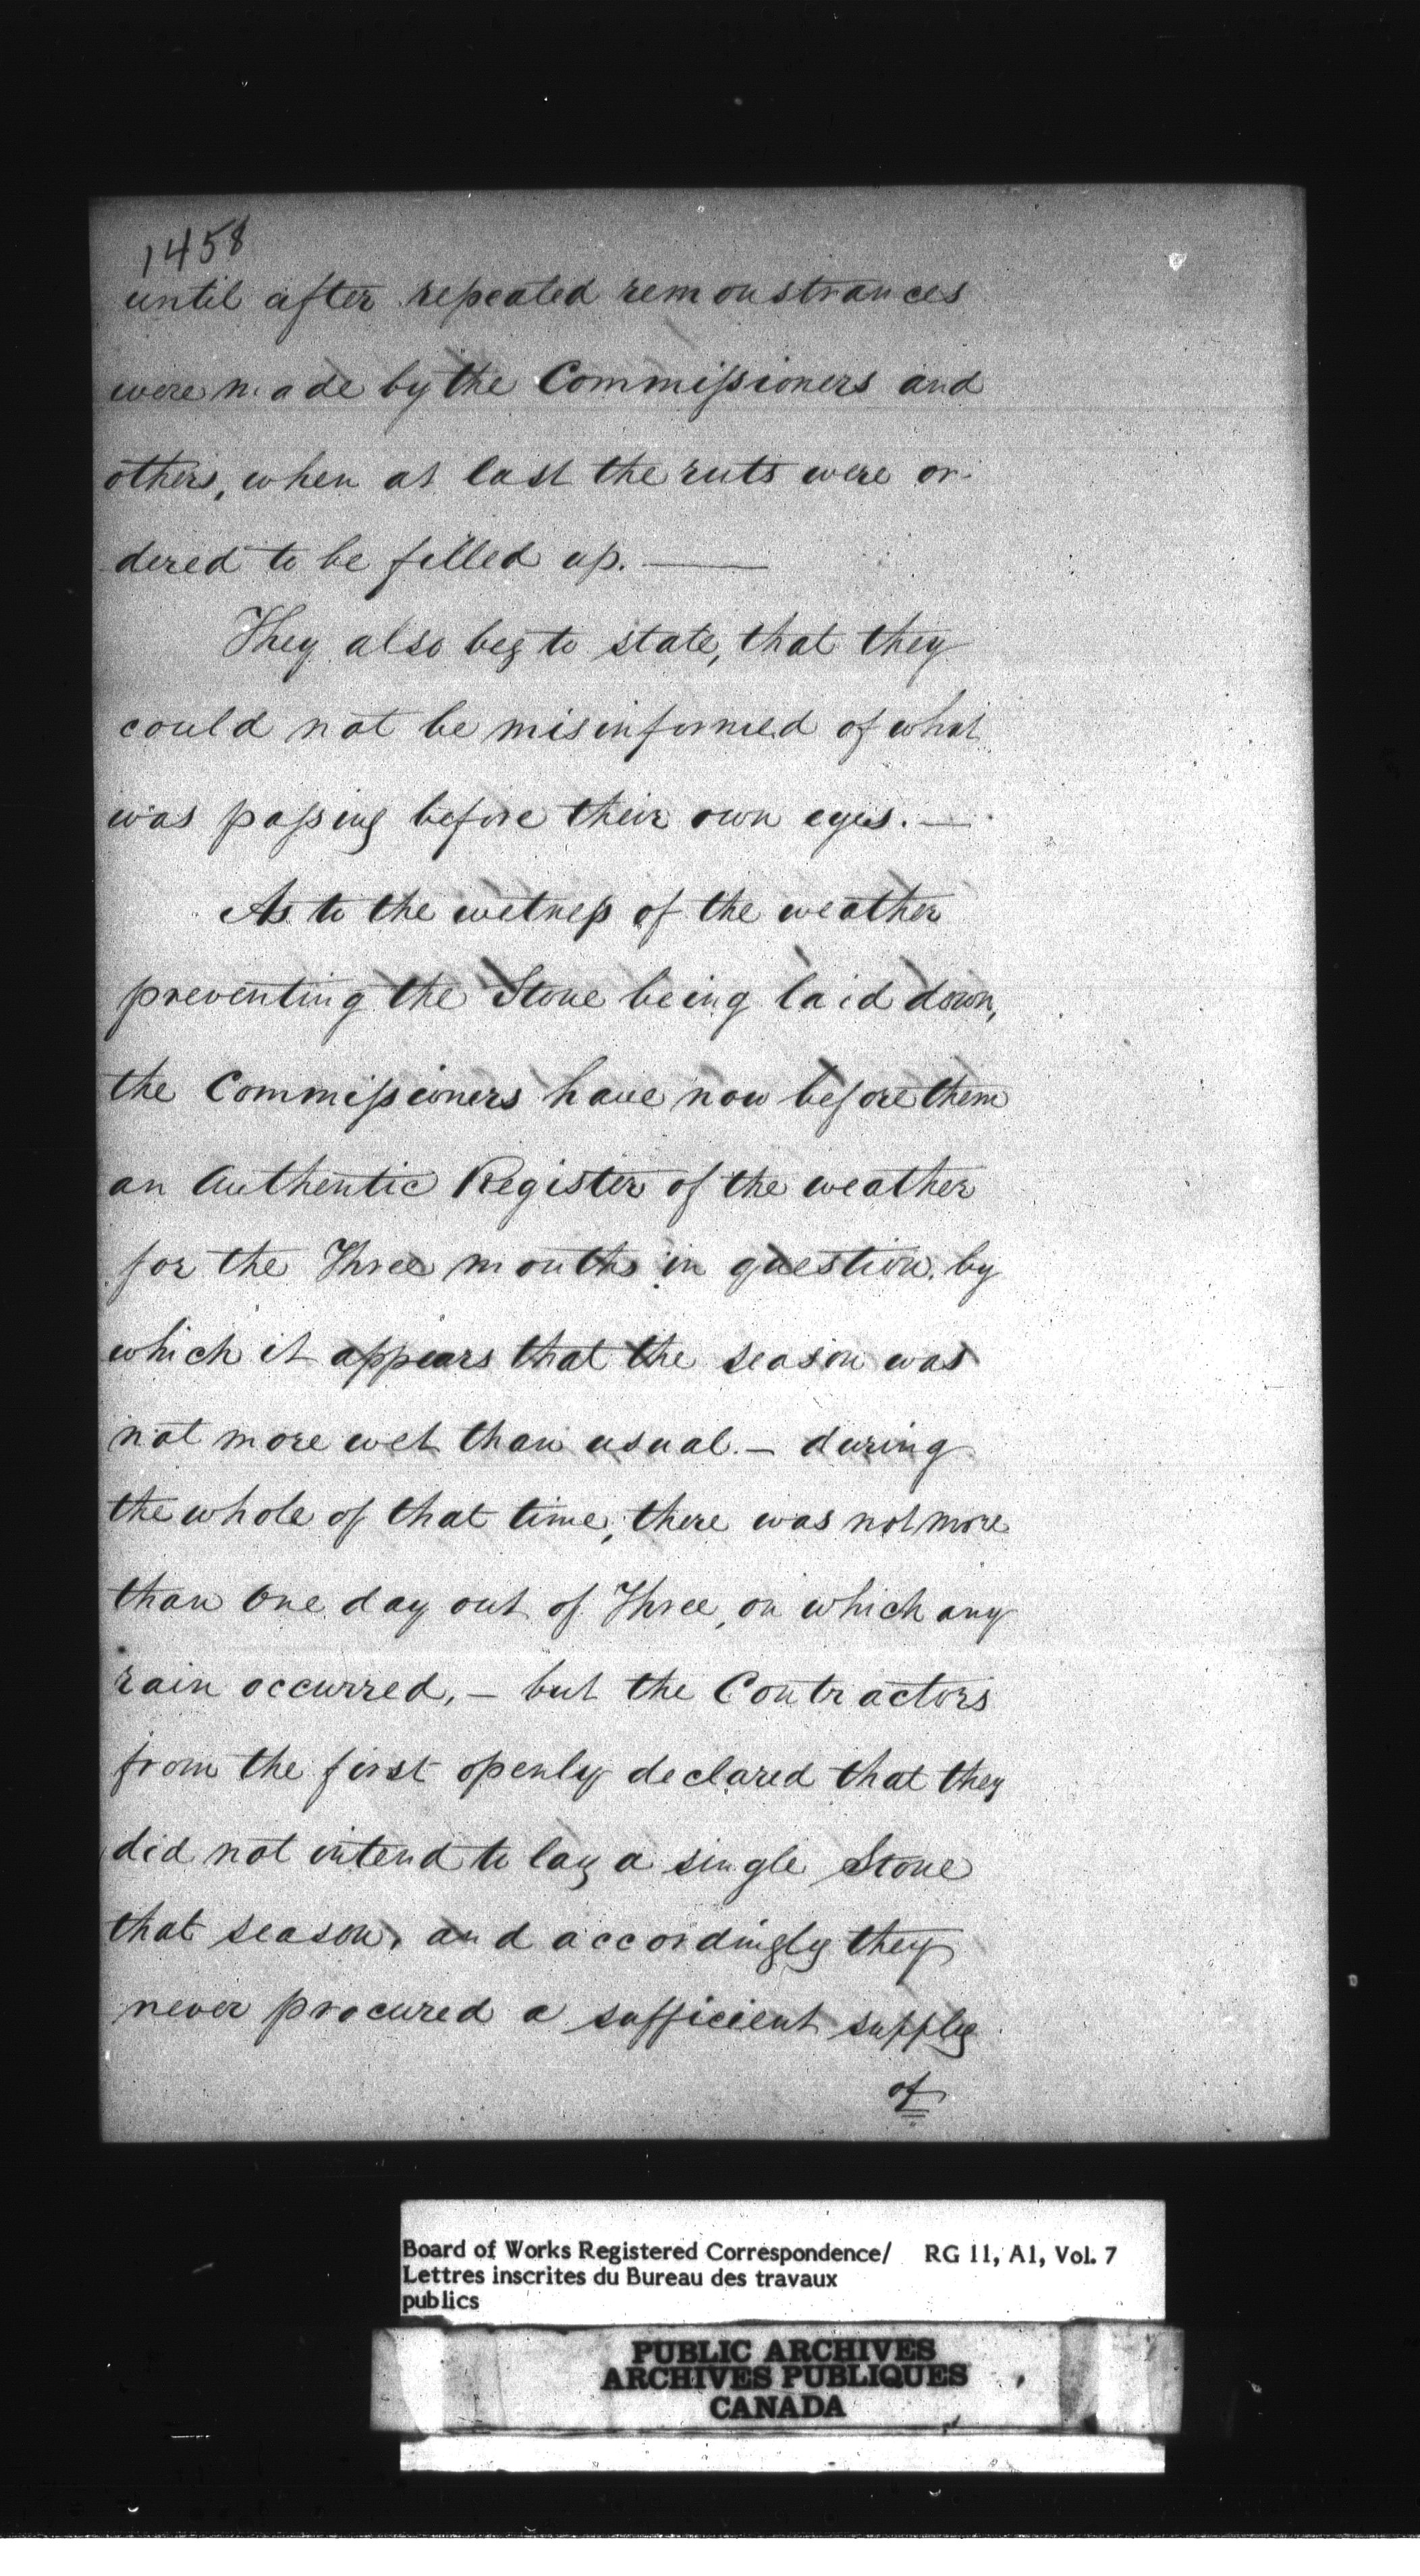 1458
until after repeated remonstrances
were made by the Commissioners and
others, when at last the ruts were or-
dered to be filled up. —
They also beg to state, that they
could not be misinformed of what
was passing before their own eyes. —
As to the wetness of the weather
preventing the Stone being laid down,
the Commissioners have now before them
an Authentic Register of the weather
for the Three months in question, by
which it appears that the season was
not more wet than usual. — during
the whole of that time, there was not more
than One day out of Three, on which any
rain occurred, — but the Contractors
from the first openly declared that they
did not intend to lay a single Stone
that season, and accordingly they
never procured a sufficient supply
of
Board of Works Registered Correspondence/ RG 11, A1, Vol. 7
Lettres inscrites du Bureau des travaux
publics
PUBLIC ARCHIVES
ARCHIVES PUBLIQUES
CANADA